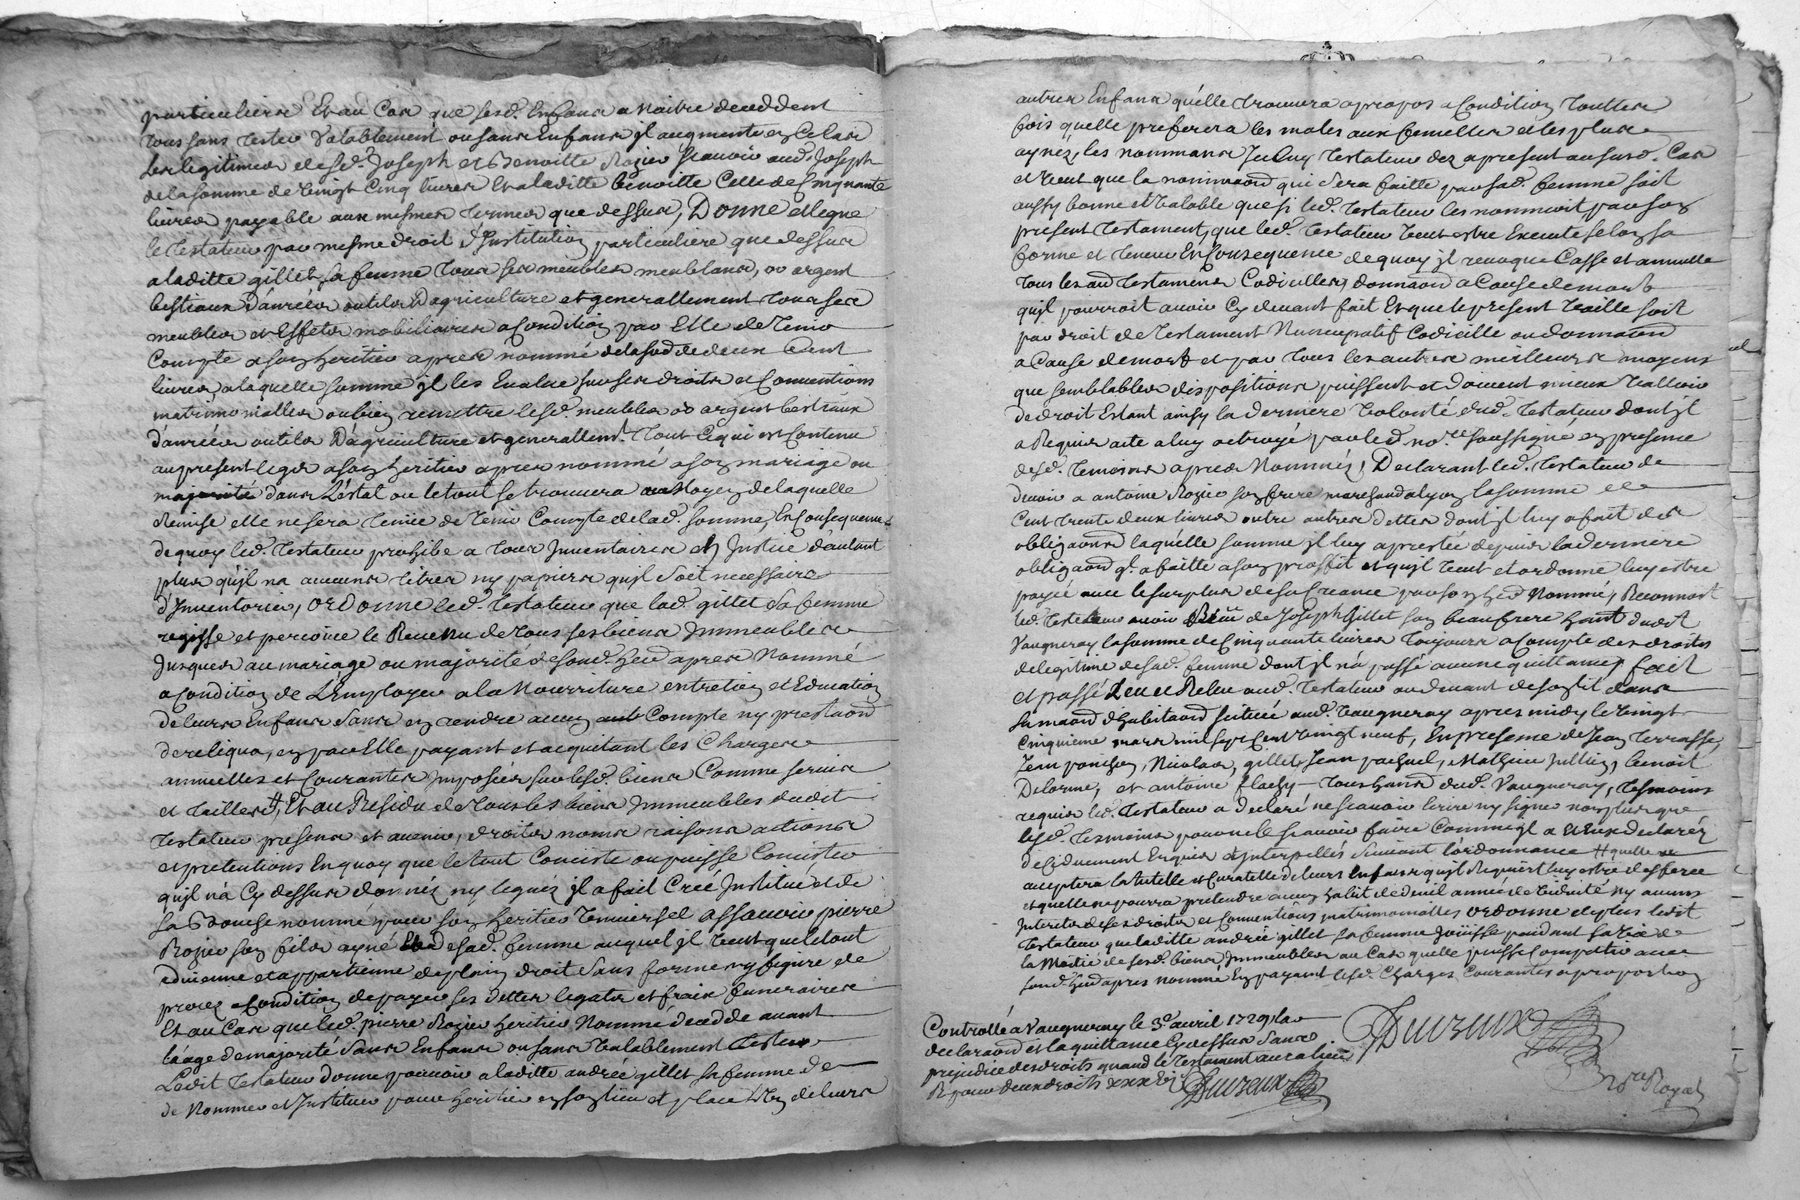 particuliere Et au Cas que sesd. Enfans a Naitre deceddent
tous sans tester Valablement ou sans Enfans jl augmente en Ce Cas
les legitimes desd. Joseph et Benoitte Rozier scavoir aud. Joseph
de la somme de Vingt Cinq livres Et a laditte benoitte Celle de Cinquante
livres payable aux mesmes termes que dessus, Donne et legue
le testateur par mesme droit d'Institution particuliere que dessus
a laditte gillet sa femme tous ses meubles meublans, or argent
bestiaux danrées outils d'agriculture et generallement tous ses
meubles et Effets mobiliaires a Condition par Elle de Tenir
Compte a son heritier apres nommé de la som de deux Cent
livres a laquelle somme jl les Evalue sur ses droits et Conventions
matrimonialles ou bien remettre lesd. meubles or argent bestiaux
danrées outils D'agriculture et generallemt. Tout Ce qui est Contenu
au present legs a son heritier apres nommé a son mariage ou
majorité dans L'estat ou le tout se trouvera au Moyen de laquelle
Remise elle ne sera Tenüe de Tenir Compte de lad. somme, En Consequence
de quoy led. Testateur prohibe a tous Inventaires En Justice d'autant
plus qu'jl na aucuns titres ny papiers qu'jl soit necessaire
d'Inventorier, ordonne led. Testateur que lad. gillet sa femme
regisse et percoive le Revenu de tous ses biens Immeubles
Jusques au mariage ou majorité de sond. herd. apres Nommé
a Condition de L'Employer a la Nourriture entretien et Education
de leurs Enfans sans en rendre aucun Compte ny prestaon
de reliqua, en par Elle payant et acquitant les Charges
annuelles et Courantes Imposées sur lesd. biens Comme servis
et tailles #, Et au Residu de tous les biens Immeubles dudit
Testateur presens et avenir, droits noms raisons actions
et pretentions En quoy que le tout Conciste ou puisse Concister
qu'jl n'a Cy dessus donnés ny legués jl a fait Créé Institué et de
sa bouche nommé pour son heritier Universel assavoir pierre
Rozier son fils ayné et de sad. femme auquel jl veut que le tout
advienne et appartienne de plain droit sans forme ny figure de
proces a Condition de payer ses dettes legats et frais funeraires
Et au Cas que led. pierre Rozier heritier Nommé decedde avant
l'aage de majorité sans Enfans ou sans Valablement Tester
Ledit Testateur donne pouvoir a laditte andrée gillet sa femme de
de Nommer et Instituer pour heritier en son lieu et place l'Un de leurs
autres Enfans qu'elle trouvera apropos a Condition touttes
fois quelle preferera les males aux femelles et les plus
aynés, les nommans Icelluy Testateur dez a present aususd. Cas
et Veut que la nominaon qui sera faitte par sad. femme soit
aussy bonne et Valable que si led. Testateur les nommoit par son
present Testament, que led. Testateur Veut estre Execute selon sa
forme et teneur En Consequence de quoy jl revoque Casse et annulle
tous les aud Testamens Codicilles, donnaons a Cause de mort
qu'jl pourroit avoir Cy devant fait Et que le present Vaille soit
par droit de Testament Nuncupatif Codicille ou donnaon
a Cause de mort et par tous les autres meilleurs moyens
que semblables dispositions puissent et doivent mieux Valloir
de droit Estant ainsy la derniere Volonté dud. Testateur dont jl
a Requis acte a luy octroyé par led. nore. soussigné en presence
desd. temoins apres Nommés, Declarant led. Testateur de
devoir a antoine Rozier son frere marchand a lyon la somme de
Cent trente deux livres outre autres dettes dont jl luy a fait des
obligaons laquelle somme jl luy a prestée depuis la derniere
obligaon q'l a faitte a son proffit et qu'jl Veut et ordonne luy estre
payée avec le surplus de sa Creance par son herd. Nommé, Reconnoit
led. Testateur avoir Receu de Joseph Gillet son beau frere hant. dudit
Vaugneray la somme de Cinquante livres toujours a Compte des droits
de legitime de sad. femme dont jl n'a passé aucune quittance, fait
et passé Leu et Releu aud. Testateur au devant de son lit dans
sa maon d'habitaon scituée aud. Vaugneray apres midy le Vingt
Cinquieme mars mil sept Cent Vingt neuf, En presence de Jean Terrasse,
Jean ponchon, Nicolas gillet, Jean pasquel, Mathieu Jullien, benoit
Delorme, et antoine flachy tous hans. dud. Vaugneray, tesmoins
requis led. Testateur a declaré ne scavoir écrire ny signer non plus que
lesd. tesmoins pour ne le scavoir faire Comme jl a et eux declarés
de ce duement Enquis et Interpellés suivant l'ordonnance # quelle
acceptera la tutelle et Curatelle de leurs Enfans qu'jl Requiert luy estre defferée
et quelle ne pourra pretendre aucun habit de deuil année de Viduité ny aucuns
Interets de ses droits et Conventions matrimonialles, ordonne deplus ledit
Testateur que laditte andrée gillet sa femme Joüisse pendant sa Vie de
la Moitié de sesd. biens Immeubles au Cas quelle puisse Compatir avec
sond. herd. apres nommé En payant lesd. Charges Courantes a proportion
Controllé a Vaugneray le 3e. avril 1729 la
declaraon et la quittance Cy dessus sans
prejudice des droits quand le Testament aura lieu
R pour deux droits xxx s
Duvzeux
Duvzeux
Nore. Royal